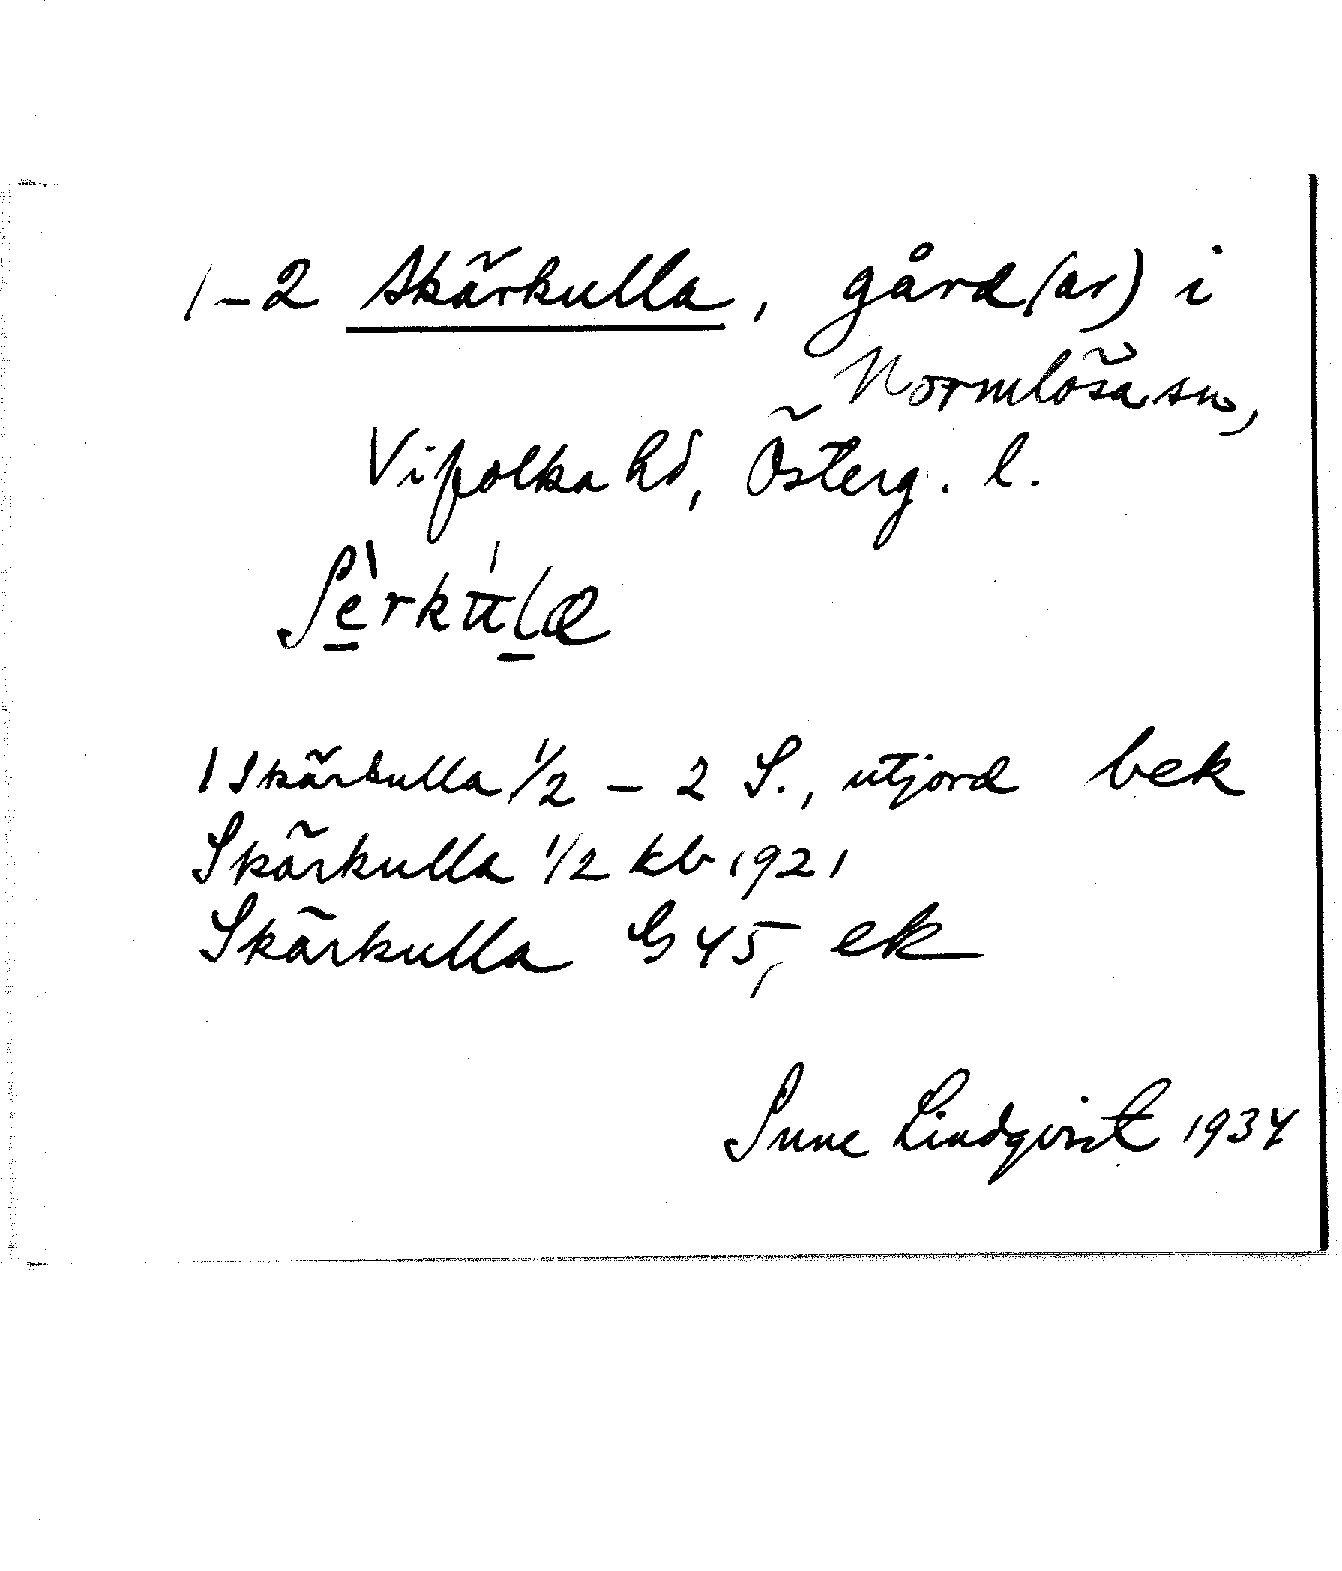 1–2 Skärkulla, gård(ar) i
Normlösa sn,
Vifolka hd, Österg. l.
1 Skärkulla 1/2 – 2 S., utjord bek
Skärkulla 1/2 kb 1921
Skärkulla G 45, ek
Sune Lindqvist 1934